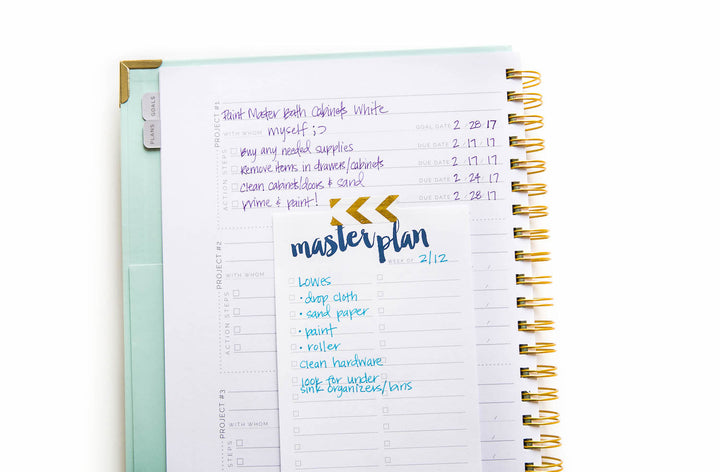 GOALS
PLANS
PROJECT #1
Paint Master Bath Cabinets White
WITH WHOM myself ;) GOAL DATE 2 / 28 / 17
ACTION STEPS
Buy any needed supplies DUE DATE 2 / 17 / 17
Remove items in drawers/cabinets DUE DATE 2 / 17 / 17
Clean cabinets/doors & sand DUE DATE 2 / 24 / 17
Prime & paint! DUE DATE 2 / 28 / 17
PROJECT #2
WITH WHOM
ACTION STEPS
PROJECT #3
WITH WHOM
ACTION STEPS
master plan
WEEK OF 2/12
Lowes
• drop cloth
• sand paper
• paint
• roller
clean hardware
look for under
sink organizers/bins